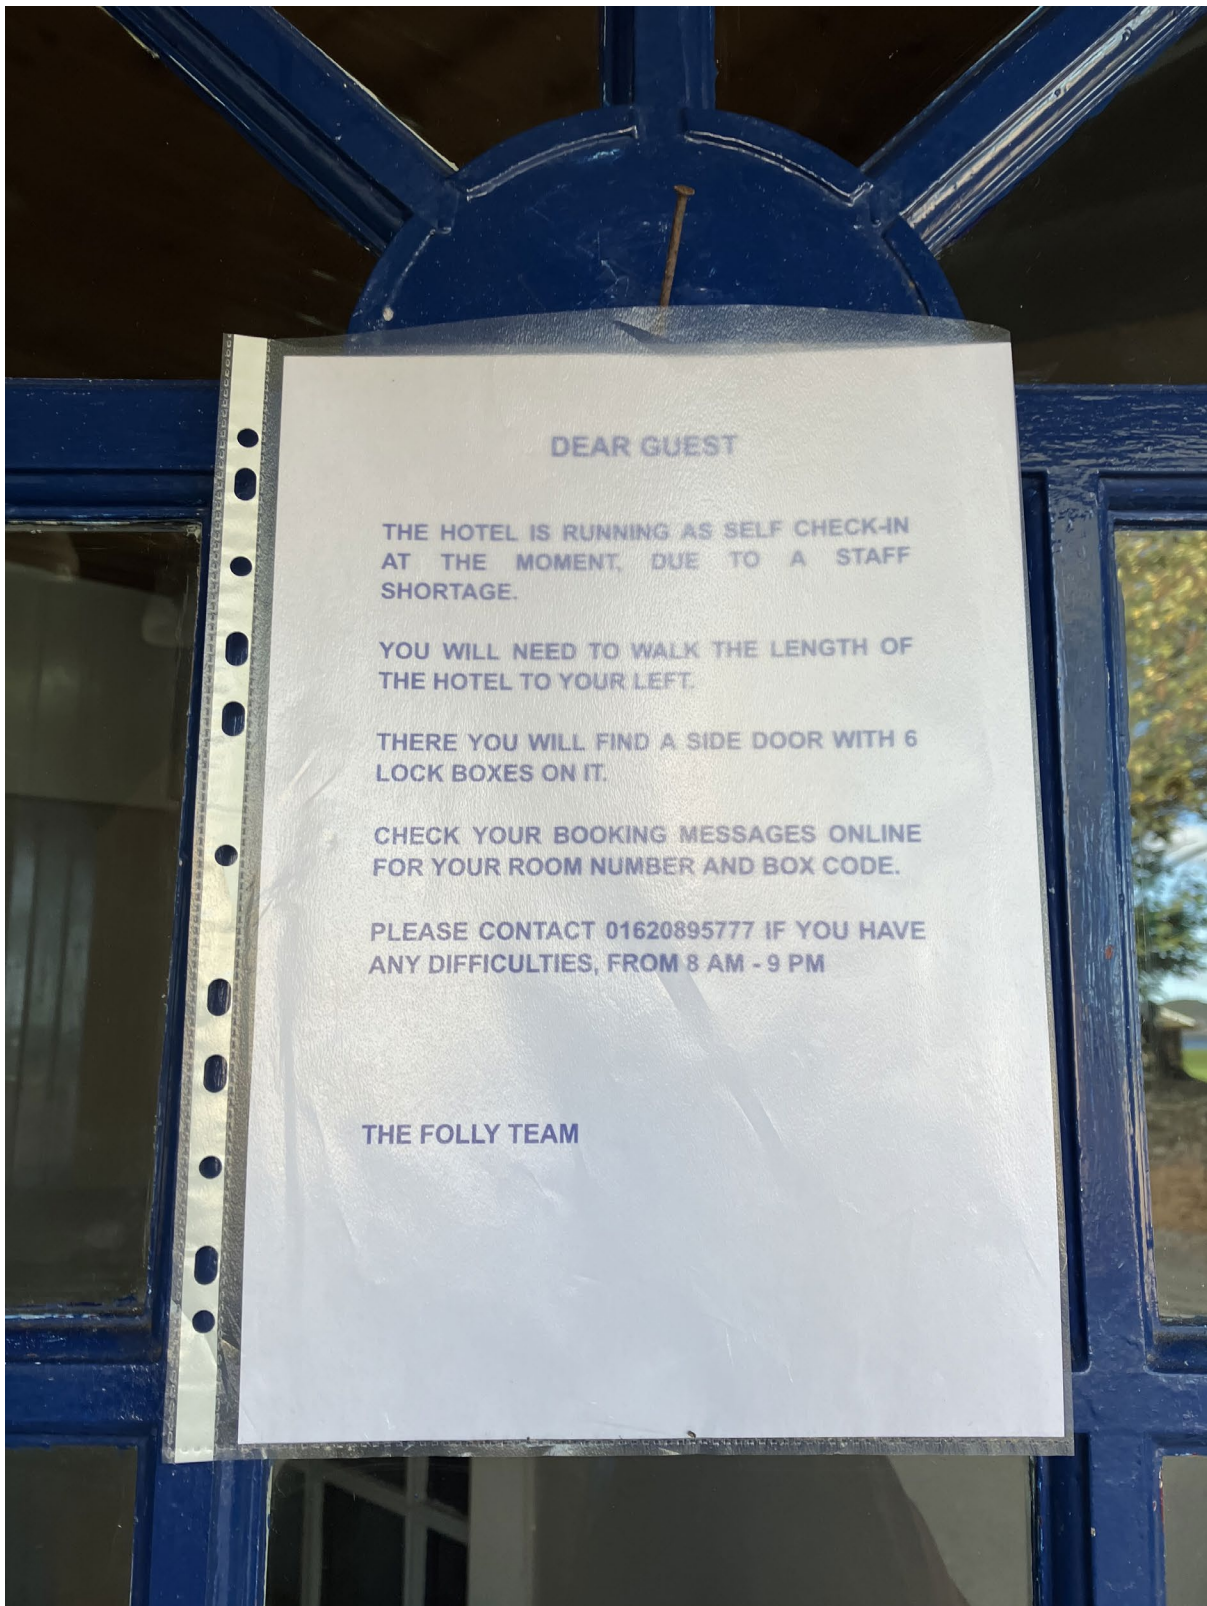 DEAR GUEST
THE HOTEL IS RUNNING AS SELF CHECK-IN
AT THE MOMENT, DUE TO A STAFF
SHORTAGE.
YOU WILL NEED TO WALK THE LENGTH OF
THE HOTEL TO YOUR LEFT.
THERE YOU WILL FIND A SIDE DOOR WITH 6
LOCK BOXES ON IT.
CHECK YOUR BOOKING MESSAGES ONLINE
FOR YOUR ROOM NUMBER AND BOX CODE.
PLEASE CONTACT 01620895777 IF YOU HAVE
ANY DIFFICULTIES, FROM 8 AM - 9 PM
THE FOLLY TEAM